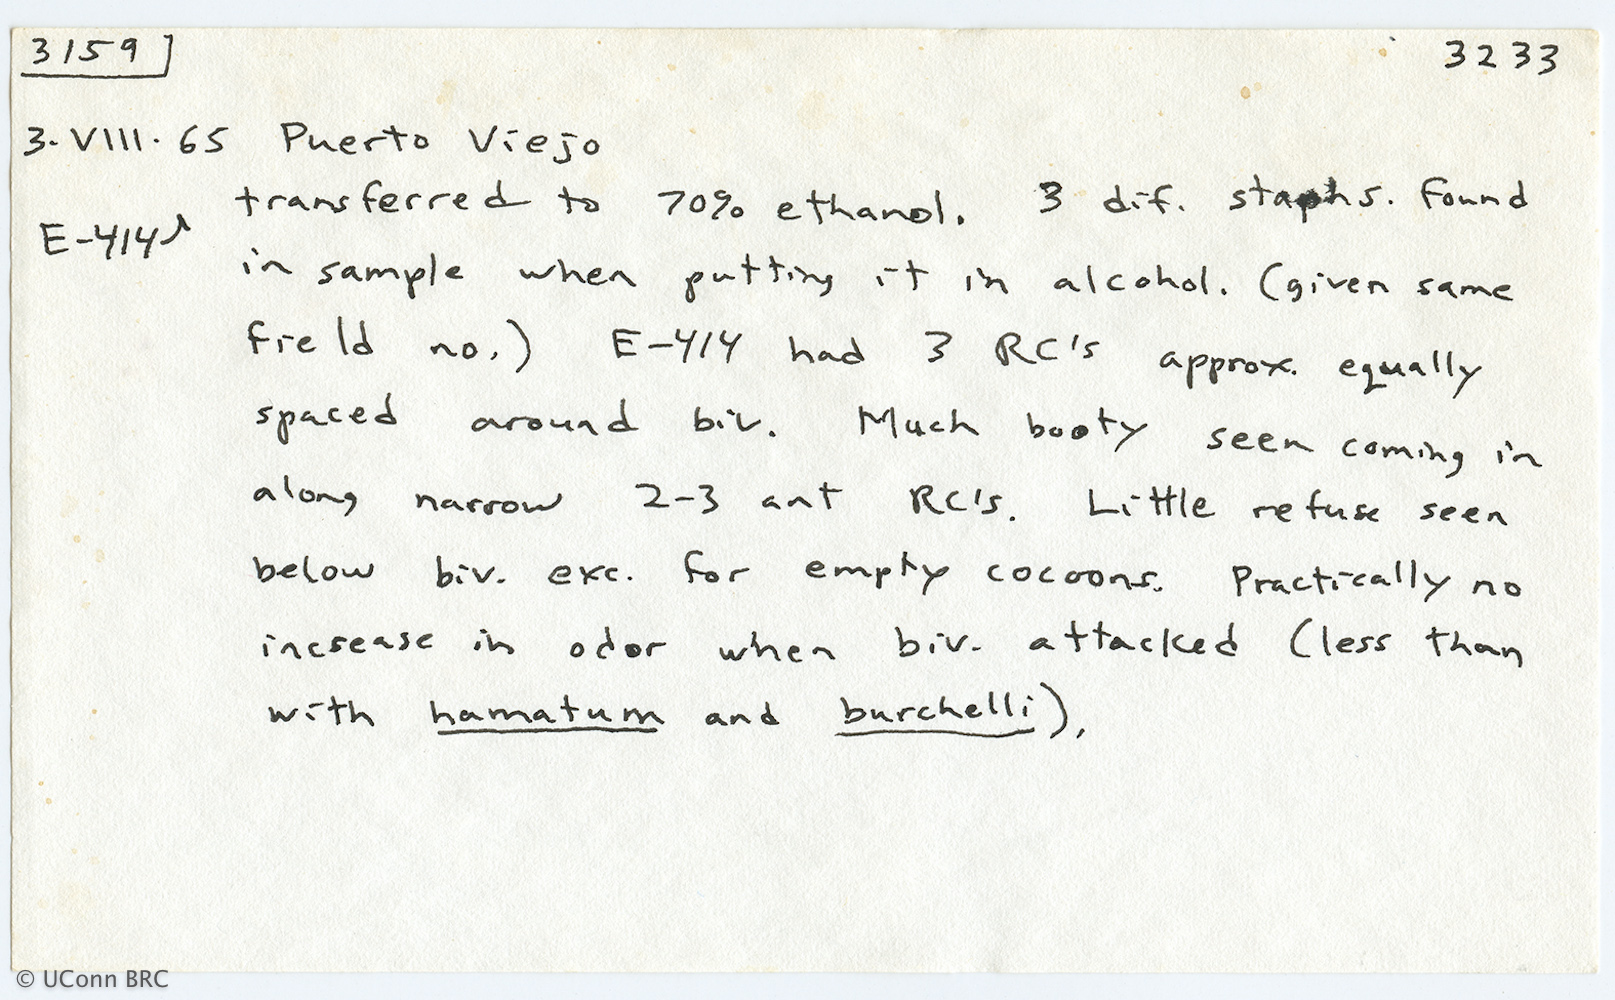 3159 3233
3.VIII.65 Puerto Viejo
transferred to 70% ethanol. 3 dif. staphs. found
E-414
in sample when putting it in alcohol. (given same
field no.) E-414 had 3 RC's approx. equally
spaced around biv. Much booty seen coming in
along narrow 2-3 ant RC's. Little refuse seen
below biv. exc. for empty cocoons. Practically no
increase in odor when biv. attacked (less than
with hamatum and burchelli).
© UConn BRC